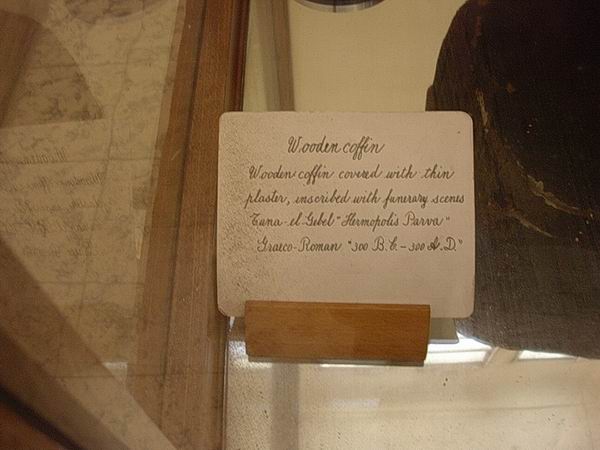 Wooden coffin
Wooden coffin covered with thin
plaster, inscribed with funerary scenes
Tuna-el Gebel "Hermopolis Parva"
Graeco-Roman "300 B.C.-300 A.D."